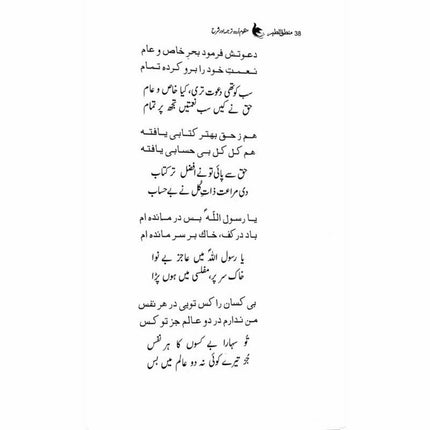 38 منطق الطیر منظوم اردو ترجمہ اور شرح
دعوتش فرمود بحرِ خاص و عام
نعمتِ خود را برو کرده تمام
سب کو تھی دعوت تری، کیا خاص و عام
حق نے کیں سب نعمتیں تجھ پر تمام
هم ز حق بهتر کتابی یافته
هم کل کل بی حسابی یافته
حق سے پائی تو نے افضل تر کتاب
دی مراعت ذاتِ کُل نے بے حساب
یا رسول اللهؐ بس در مانده ام
باد در کف، خاك بر سر مانده ام
یا رسول اللہؐ میں عاجز بے نوا
خاک سر پر، مفلسی میں ہوں پڑا
بی کسان را کس تویی در هر نفس
من ندارم در دو عالم جز تو کس
تُو سہارا بے کسوں کا ہر نفس
جُز تیرے کوئی نہ دو عالم میں بس